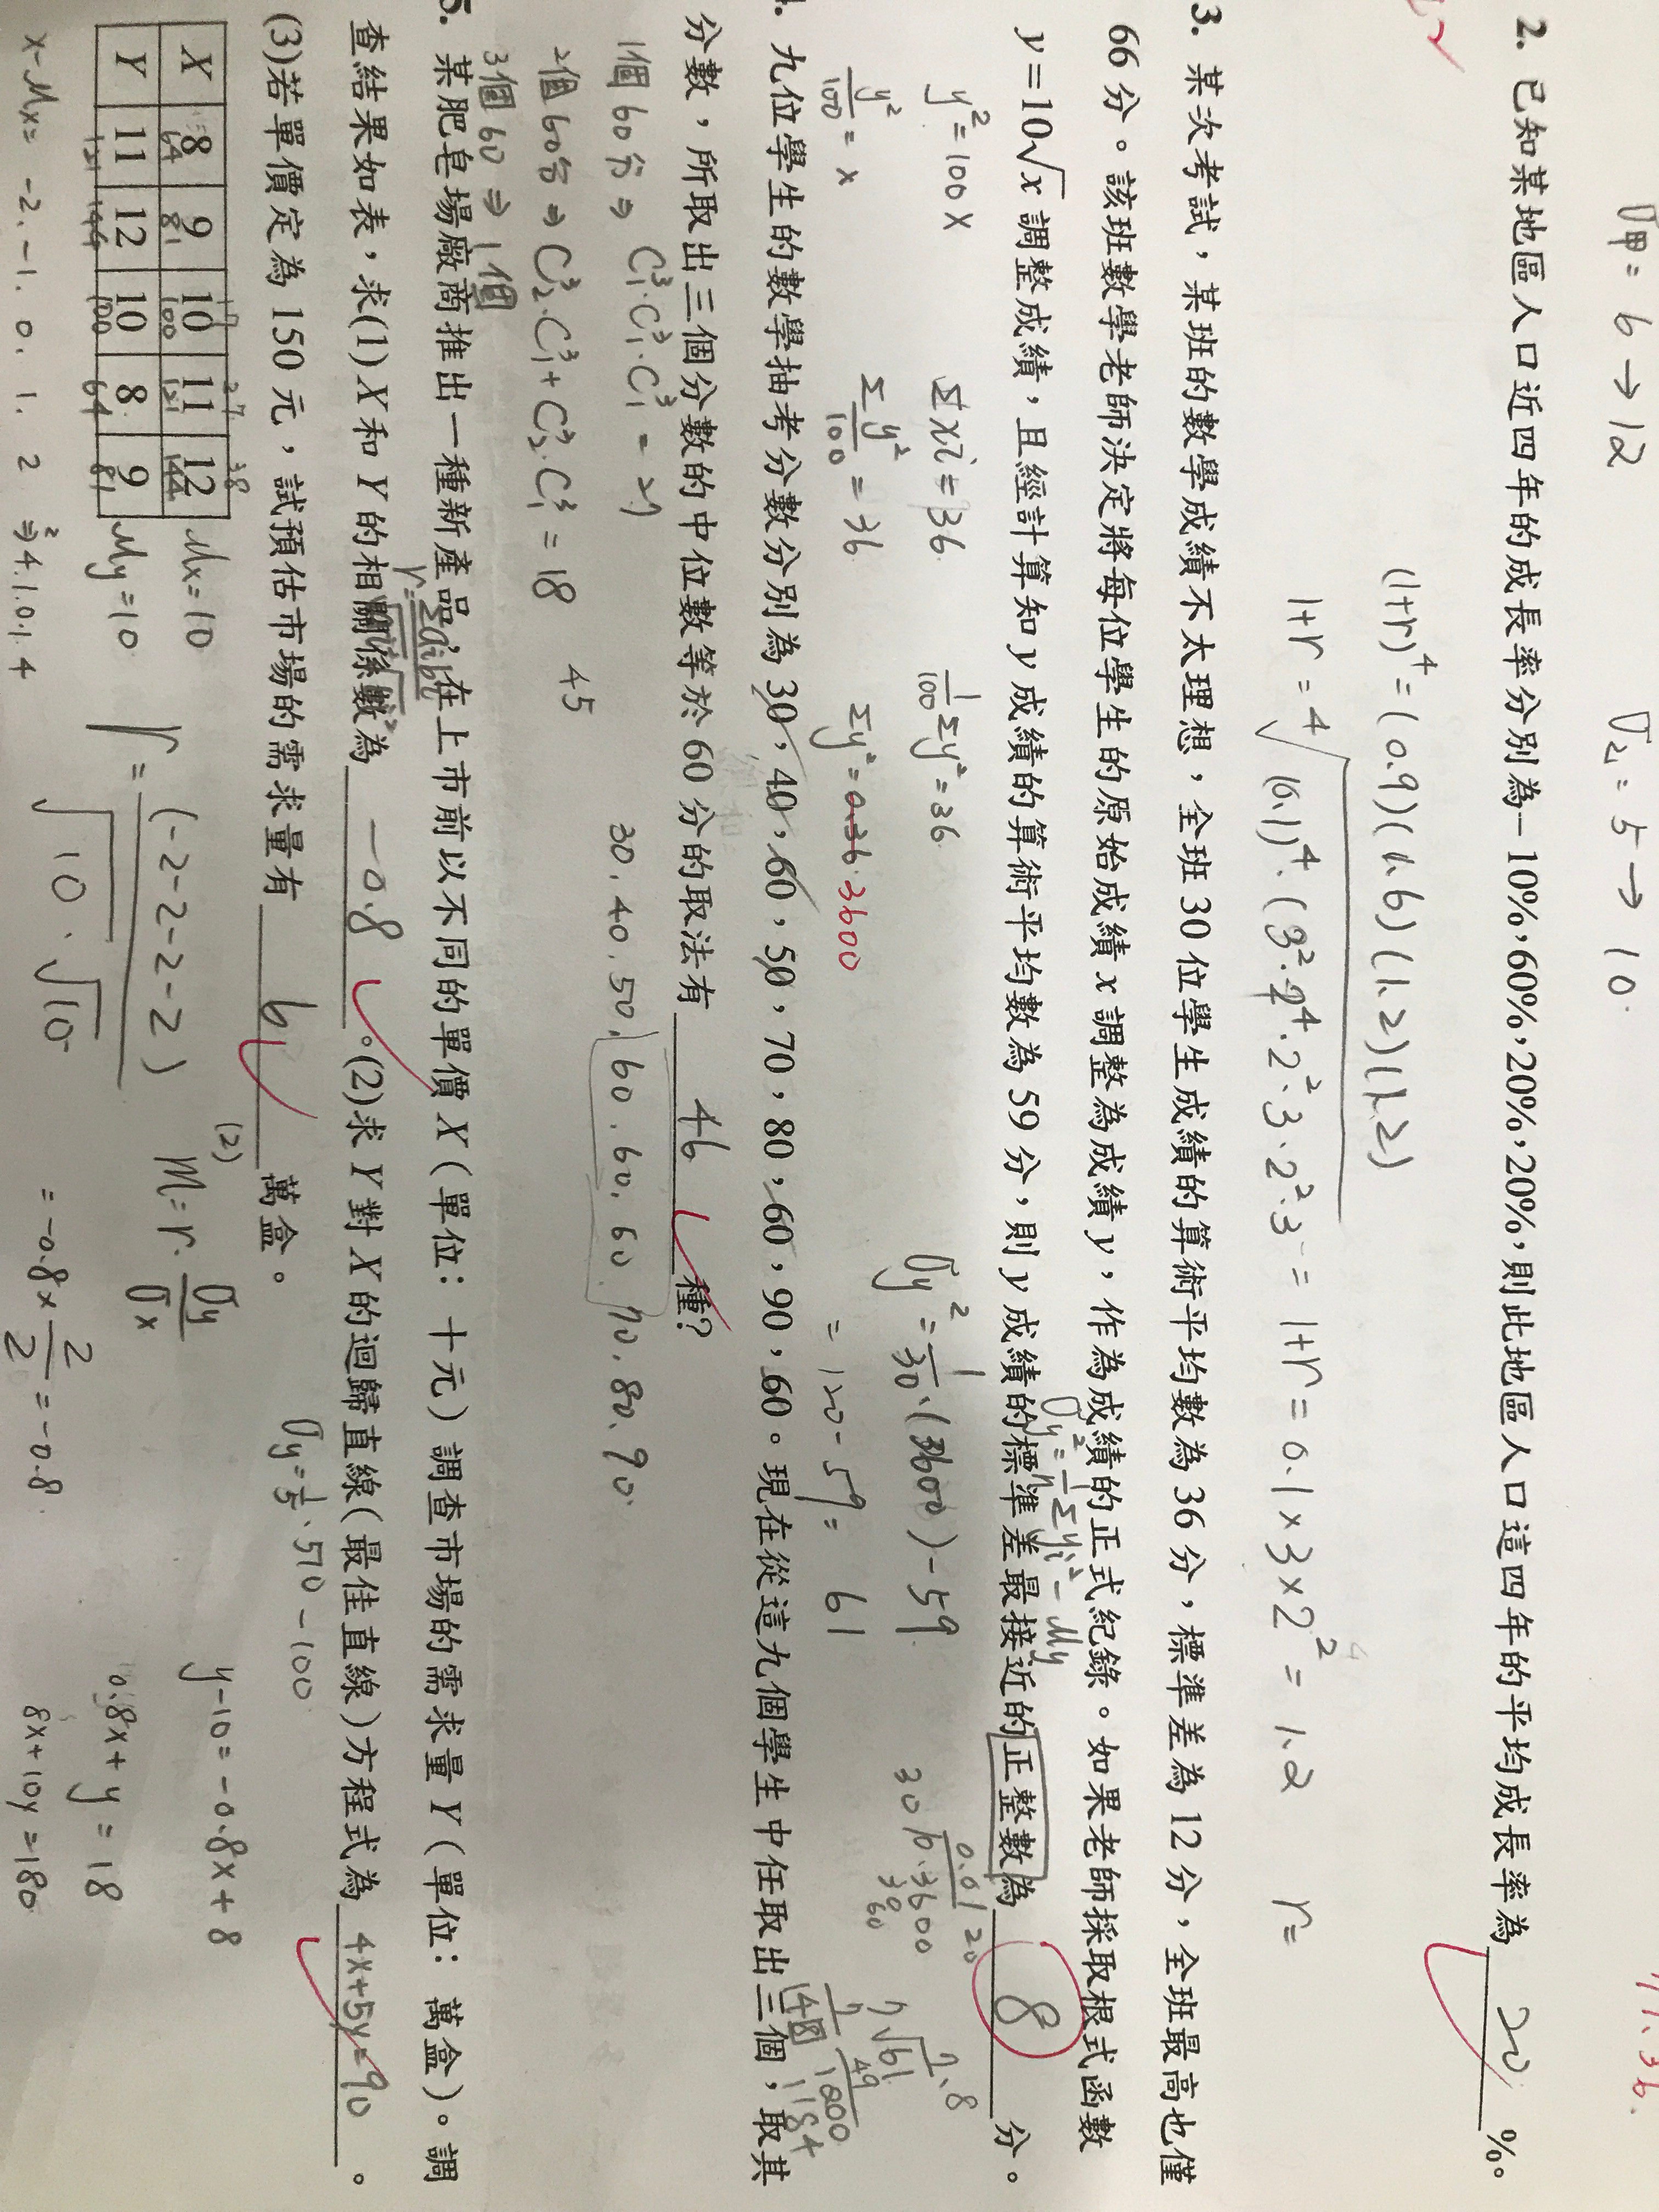 σ甲 = 6 → 12
σ乙 = 5 → 10.
2. 已知某地區人口近四年的成長率分別為−10%,60%,20%,20%,則此地區人口這四年的平均成長率為 20 %。
(1+r)⁴ = (0.9)(1.6)(1.2)(1.2)
1+r = 4√(0.1)⁴·(3²·2⁴·2²·3·2²·3 = 1+r = 0.1×3×2² = 1.2 r=
3. 某次考試，某班的數學成績不太理想，全班 30 位學生成績的算術平均數為 36 分，標準差為 12 分，全班最高也僅
66 分。該班數學老師決定將每位學生的原始成績 x 調整為成績 y，作為成績的正式紀錄。如果老師採取根式函數
σy² = 1/n Σyi² − My
y=10√x 調整成績，且經計算知 y 成績的算術平均數為 59 分，則 y 成績的標準差最接近的正整數為 8 分。
y² = 100x Σxi = 36 1/100 Σy² = 36 σy² = 1/30·(3600) − 59
y²/100 = x Σ y²/100 = 36 Σy² = 0.36 3600 = 120 − 59 = 61
7.8
7√61
49
1200
1184
148
4. 九位學生的數學抽考分數分別為 30，40，60，50，70，80，60，90，60。現在從這九個學生中任取出三個，取其
分數，所取出三個分數的中位數等於 60 分的取法有 46 種?
1個60分 ⇒ C³₁·C³₁·C³₁ = 27 30.40.50.60.60.60.70.80.90.
2個60分 ⇒ C³₂·C³₁+C³₂·C³₁ = 18 45
3個60 ⇒ 1個
5. 某肥皂場廠商推出一種新產品，在上市前以不同的單價 X（單位：十元）調查市場的需求量 Y（單位：萬盒）。調
查結果如表，求(1) X 和 Y 的相關係數為 −0.8 。(2)求 Y 對 X 的迴歸直線(最佳直線)方程式為 4x+5y=90 。
(3)若單價定為 150 元，試預估市場的需求量有 6 萬盒。
σy = 1/5·510 − 100
X 8 9 10 11 12 Mx=10
64 81 100 121 144
Y 11 12 10 8 9 My=10
121 144 100 64 81
x−Mx = −2.−1.0.1.2 ⇒ 4.1.0.1.4
r = (−2−2−2−2) / √10·√10
(2) m = r·σy/σx
= −0.8×2/2 = −0.8.
y−10 = −0.8x+8
0.8x+y = 18
8x+10y = 180